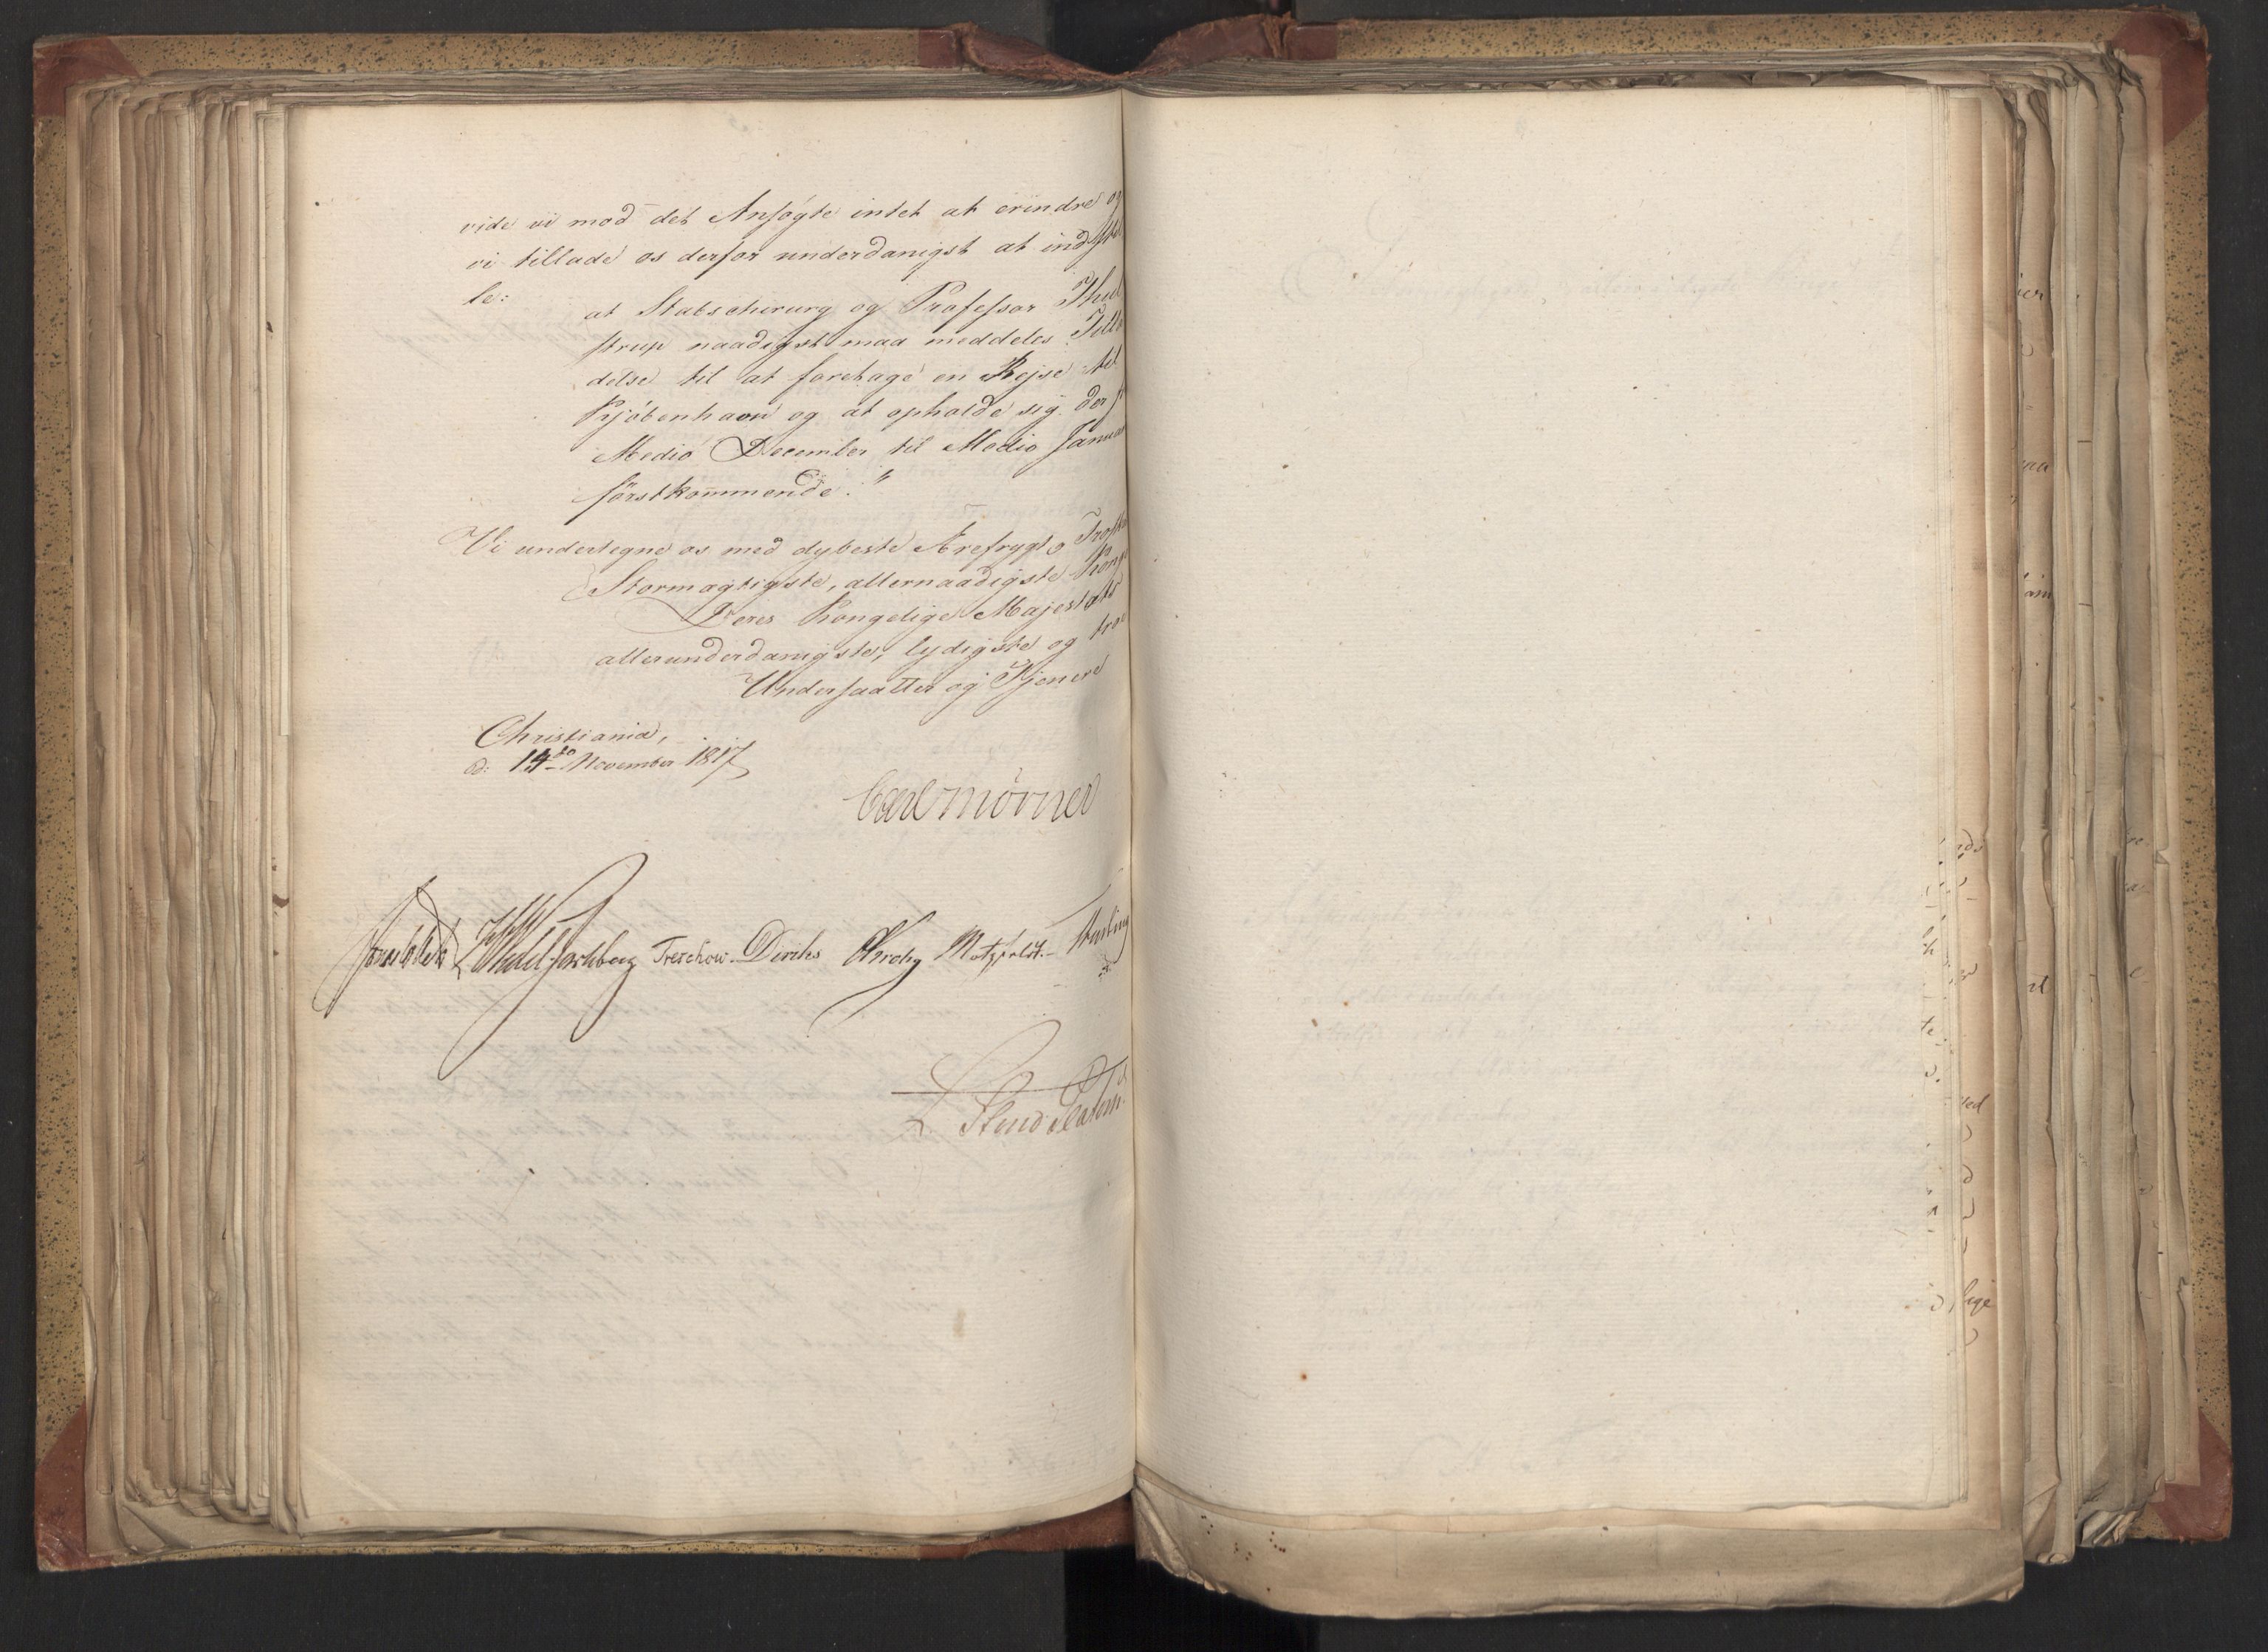 vide vi mod det Ansøgte intet at erindre og
vi tillade os derfor underdanigst at indstil
le:
at Stabschirurg og Professor Thul
strup naadigst maa meddeles Tilla
delse til at foretage en Rejse til
Kjöbenhavn og at opholde sig der f
Medio December til Medio Januar
förstkommende."
Vi undertegne os med dybeste Ærefrygt og Trosk
Stormægtigste, allernaadigste Kong
Deres Kongelige Majestæts
allerunderdanigste, lydigste og troe
Undersaatter og Tjenere
Christiania,
d: 14de November 1817
Carl Mörner
Sommerhielm Wedel Jarlsberg Treschow. Diriks Krohg Motzfeldt.